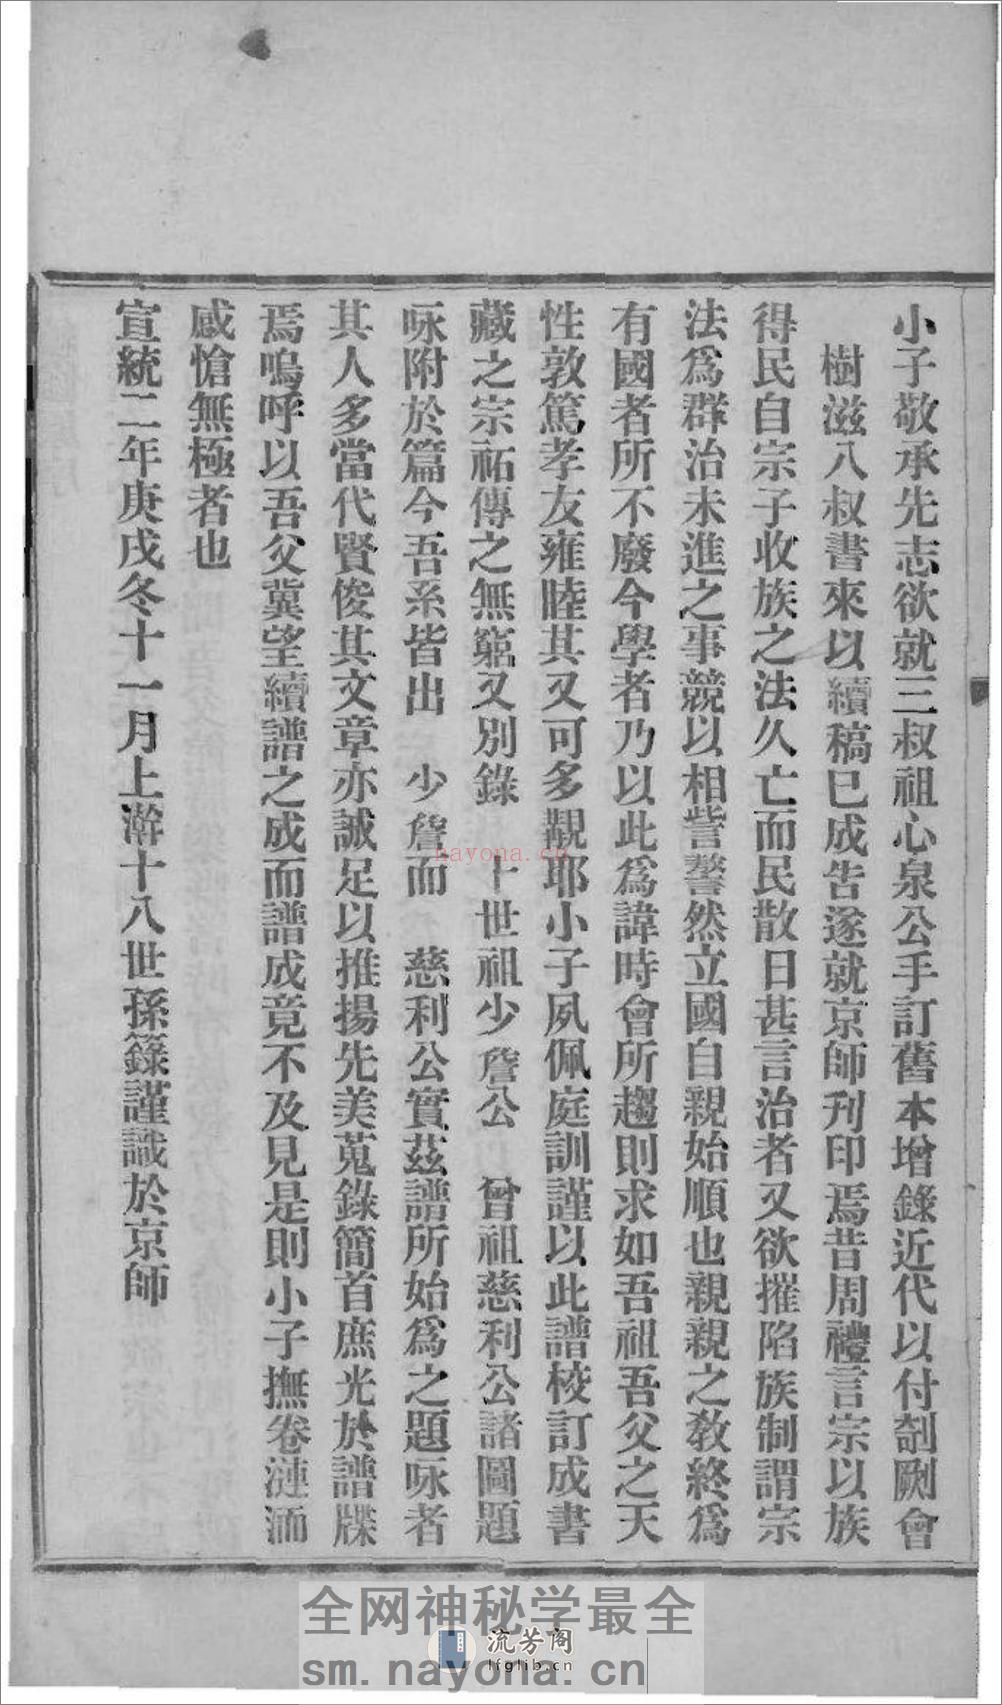 小子敬承先志欲就三叔祖心泉公手訂舊本增錄近代以付剞劂會
樹滋八叔書來以續稿已成告遂就京師刊印焉昔周禮言宗以族
得民自宗子收族之法久亡而民散日甚言治者又欲摧陷族制謂宗
法爲群治未進之事競以相訾謷然立國自親始順也親親之教終爲
有國者所不廢今學者乃以此爲諱時會所趨則求如吾祖吾父之天
性敦篤孝友雍睦其又可多觀耶小子夙佩庭訓謹以此譜校訂成書
藏之宗祏傳之無窮又別錄 十世祖少詹公 曾祖慈利公諸圖題
咏附於篇今吾系皆出 少詹而 慈利公實茲譜所始爲之題咏者
其人多當代賢俊其文章亦誠足以推揚先美蒐錄簡首庶光於譜牒
焉嗚呼以吾父冀望續譜之成而譜成竟不及見是則小子撫卷漣洏
感愴無極者也
宣統二年庚戌冬十一月上澣十八世孫籙謹識於京師
nayona.cn
全网神秘学最全
流芳阁
lfglib.cn
sm.nayona.cn